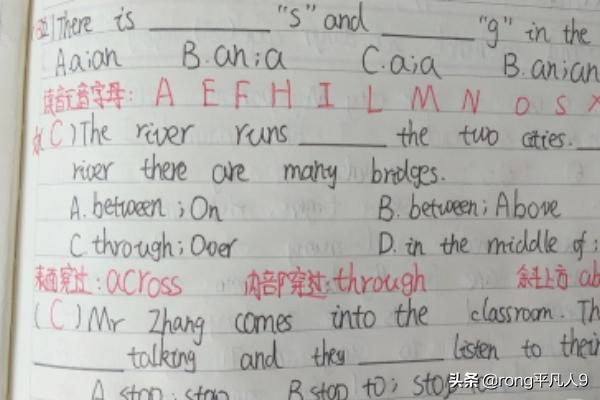 )There is ______ "s" and ______ "g" in the
A.a;an B.an;a C.a;a B.an;an
读音元音字母: A E F H I L M N O S X
(C)The river runs ______ the two cities. __
river there are many bridges.
A. between ; On B. between; Above
C. through; Over D. in the middle of ;
表面穿过: across 内部穿过: through 斜上方 ab
(C)Mr Zhang comes into the classroom. Th
______ talking and they ______ listen to their
A stop; stop B stop to; stop
头条 @rong平凡人9